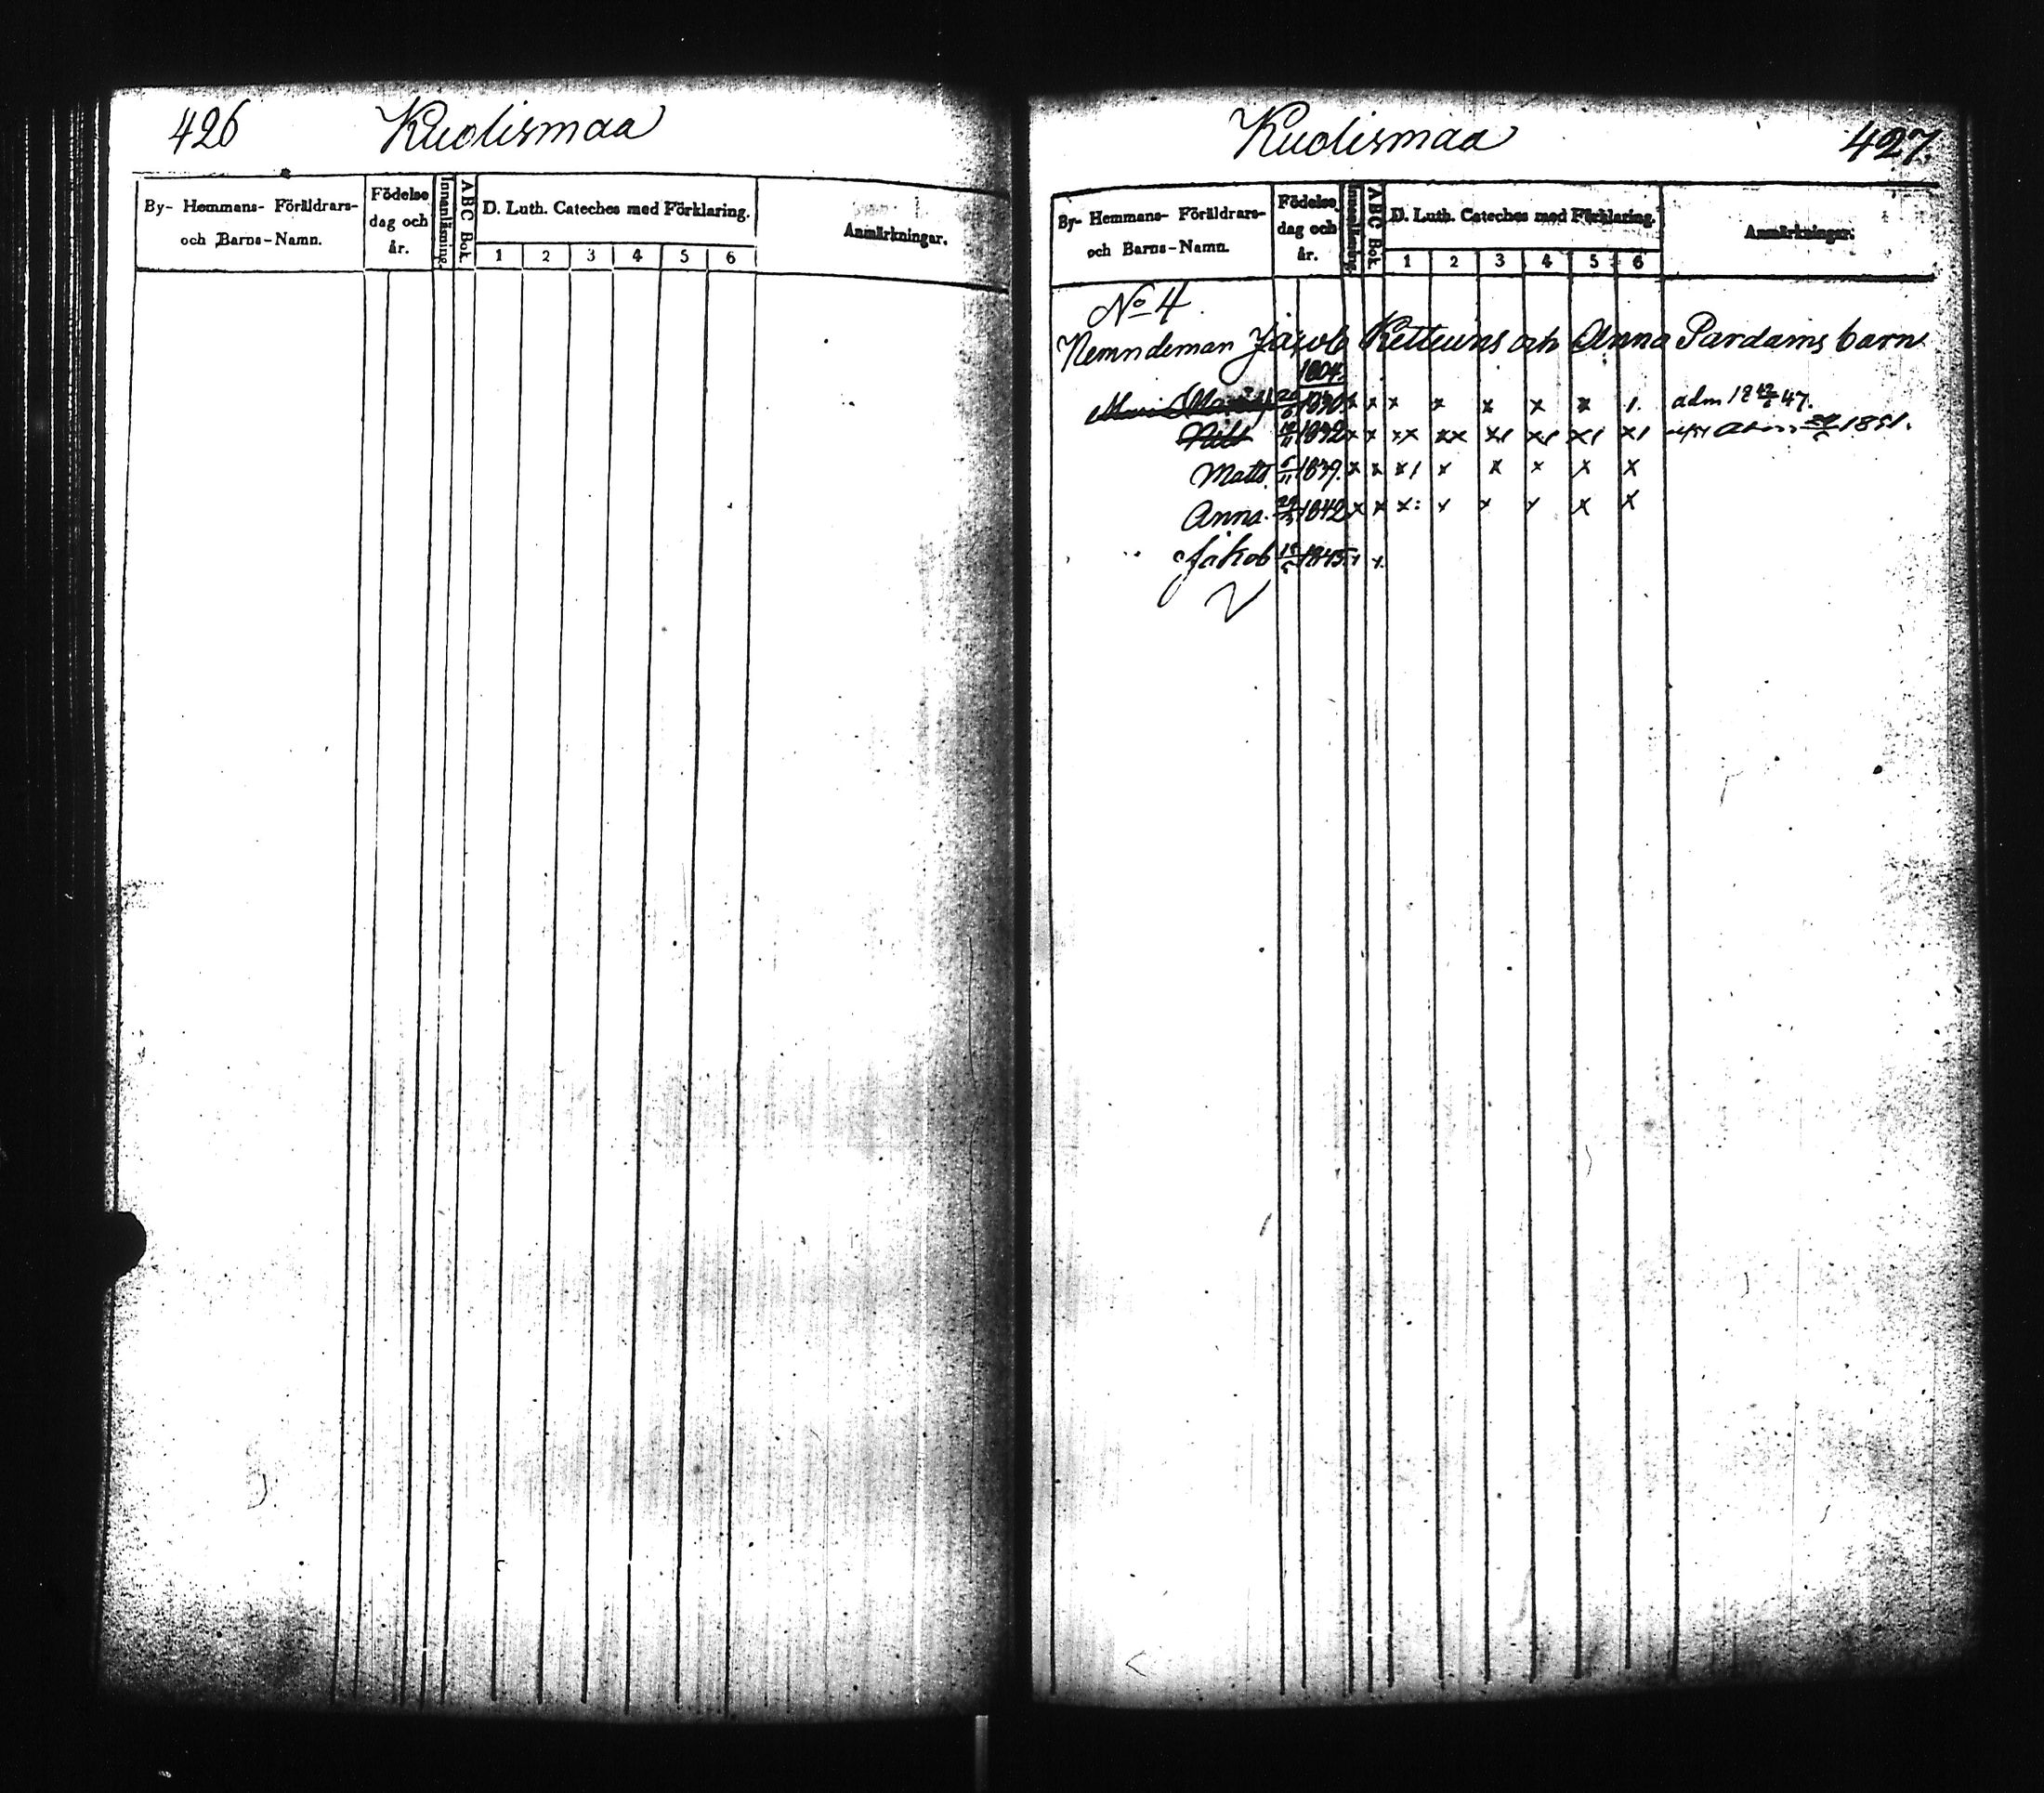 426 Kuolismaa
By- Hemmans- Föräldrars- och Barns-Namn. Födelse dag och år. Innanläsning. ABC Bok. D. Luth. Cateches med Förklaring. Anmärkningar.
1 2 3 4 5 6
Kuolismaa 427.
By- Hemmans- Föräldrars- och Barns-Namn. Födelse dag och år. Innanläsning. ABC Bok. D. Luth. Cateches med Förklaring. Anmärkningar.
1 2 3 4 5 6
No 4
Nemndeman Jacob Kettuins och Anna Pardains barn
1804.
1830 x x x x x x x 1. adm 18 47.
Nils 1832 x x xx xx x1 x1 x1 x1 1851.
Matts. 5/11 1839. x x x1 x x x x x
Anna. 1842 x x x: x x x x x
Jakob 1845. x x